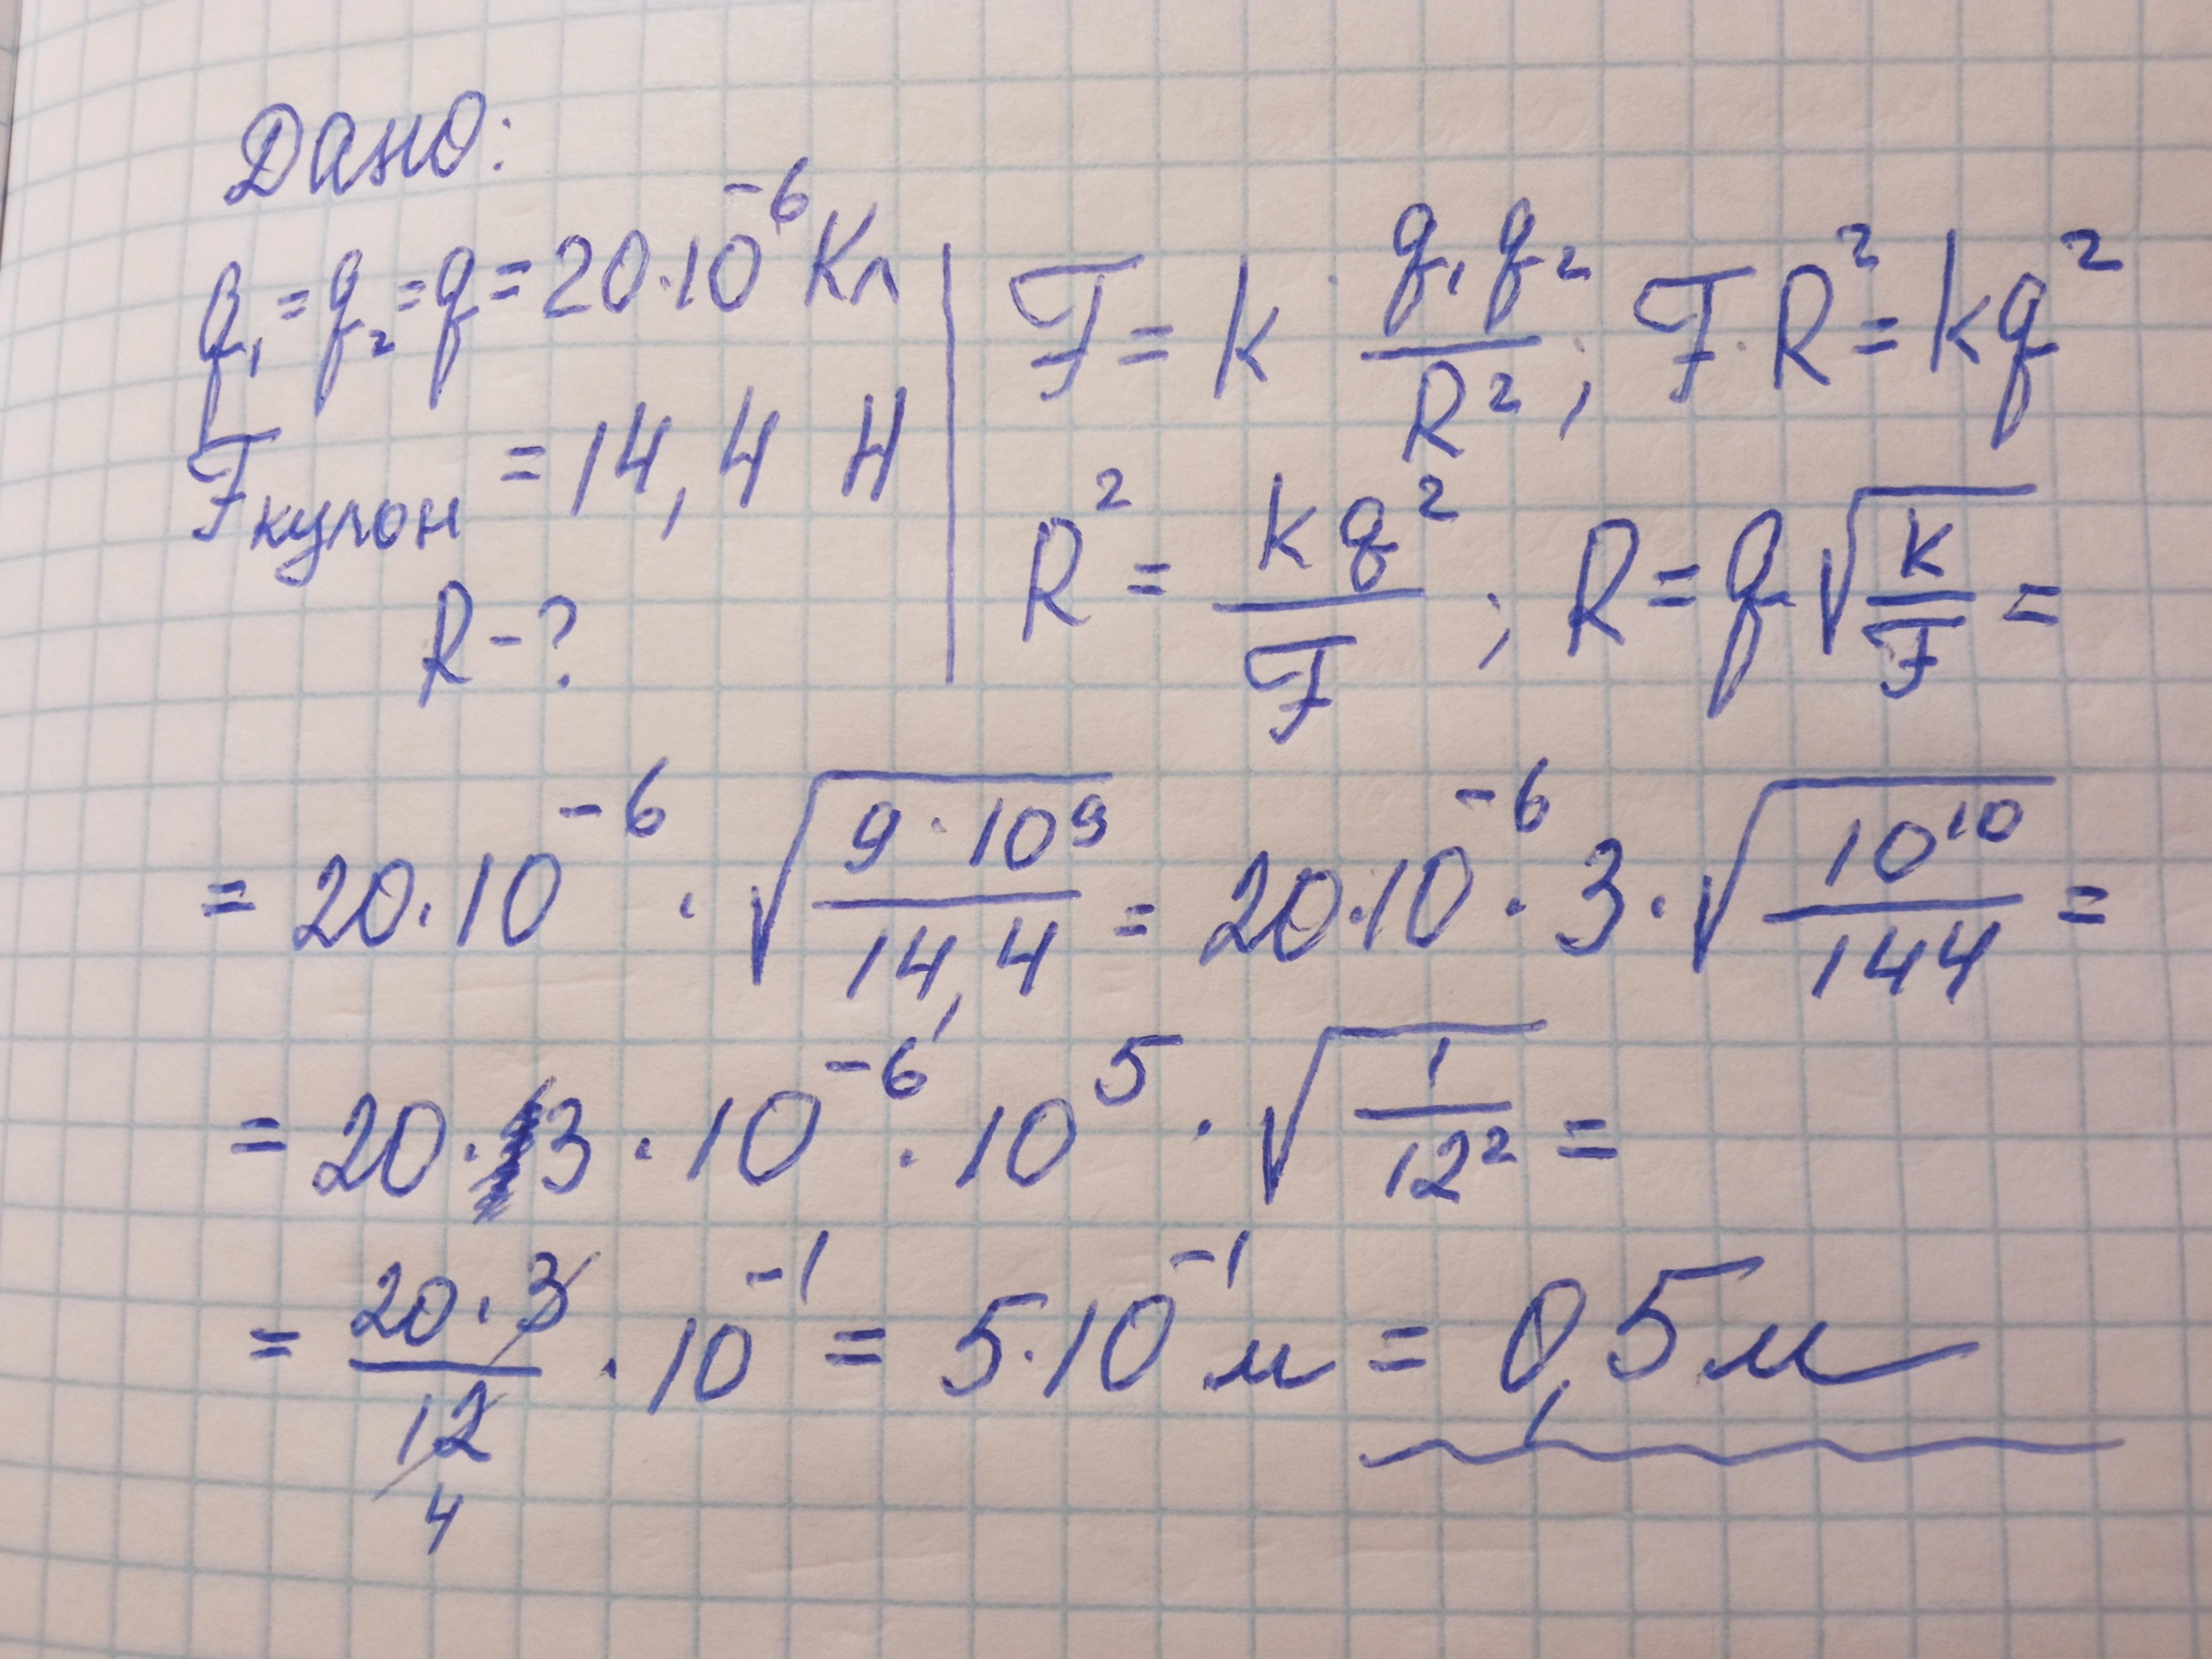 Дано:
q₁ = q₂ = q = 20·10⁻⁶ Кл
Fкулон = 14,4 Н
R - ?
F = k · q₁q₂/R²; F·R² = kq²
R² = kq²/F; R = q√(k/F) =
= 20·10⁻⁶ · √(9·10⁹/14,4) = 20·10⁻⁶ · 3 · √(10¹⁰/144) =
= 20 · 3 · 10⁻⁶ · 10⁵ · √(1/12²) =
= 20·3/12 · 10⁻¹ = 5·10⁻¹ м = 0,5 м
4